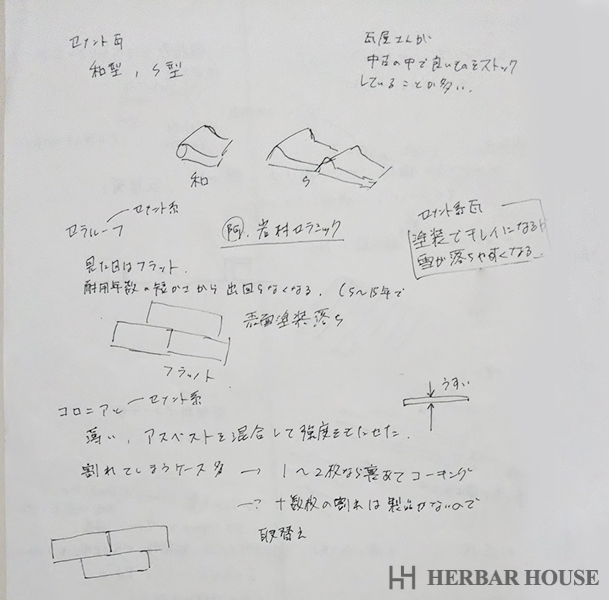 セメント瓦
和型, S型
瓦屋さんが
中古の中で良いものをストック
していることが多い.
和
S
セラルーフ
セメント系
岩村セラミック
セメント系瓦
塗装でキレイになるが
雪が落ちやすくなる
見た目はフラット.
耐用年数の短かさから出回らなくなる. (5〜15年で
表面塗装落ち
フラット
コロニアル
セメント系
うすい
薄い, アスベストを混合して強度をもたせた.
割れてしまうケース多 → 1〜2枚なら裏あてコーキング
→ 十数枚の割れは製品がないので
取替え
HERBAR HOUSE